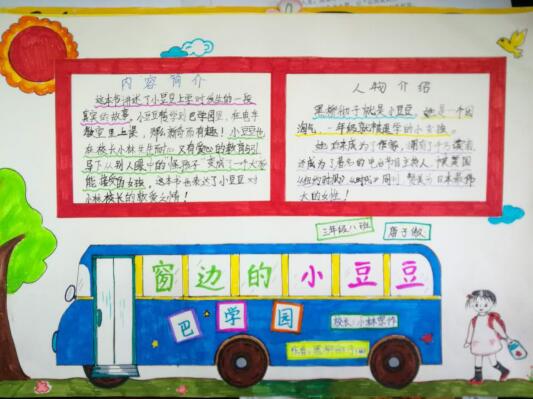 内容简介
这本书讲述了小豆豆上学时发生的一段
真实的故事。小豆豆转学到巴学园里，在电车
教室里上课，那么新奇而有趣！小豆豆也
在校长小林先生耐心又有爱心的教育与引
导下从别人眼中的怪孩子变成了一个大家都
能接受的女孩。这本书也表达了小豆豆对
小林校长的敬爱之情！
人物介绍
黑柳彻子就是小豆豆。她是一个因
淘气，一年级就被退学的小女孩。
她后来成为了作家，拥有了千万读者，
还成为了著名的电台节目主持人，被美国
《纽约时报》《时代》周刊 赞美为日本最伟
大的女性！
三年级八班
窗边的小豆豆
巴学园
校长：小林宗作
作者：黑柳彻子